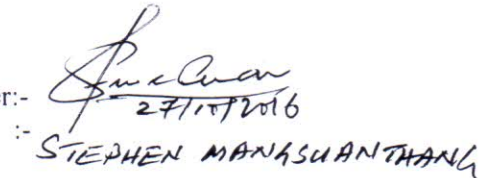 er:-
27/10/2016
:-
STEPHEN MANGSUANTHANG